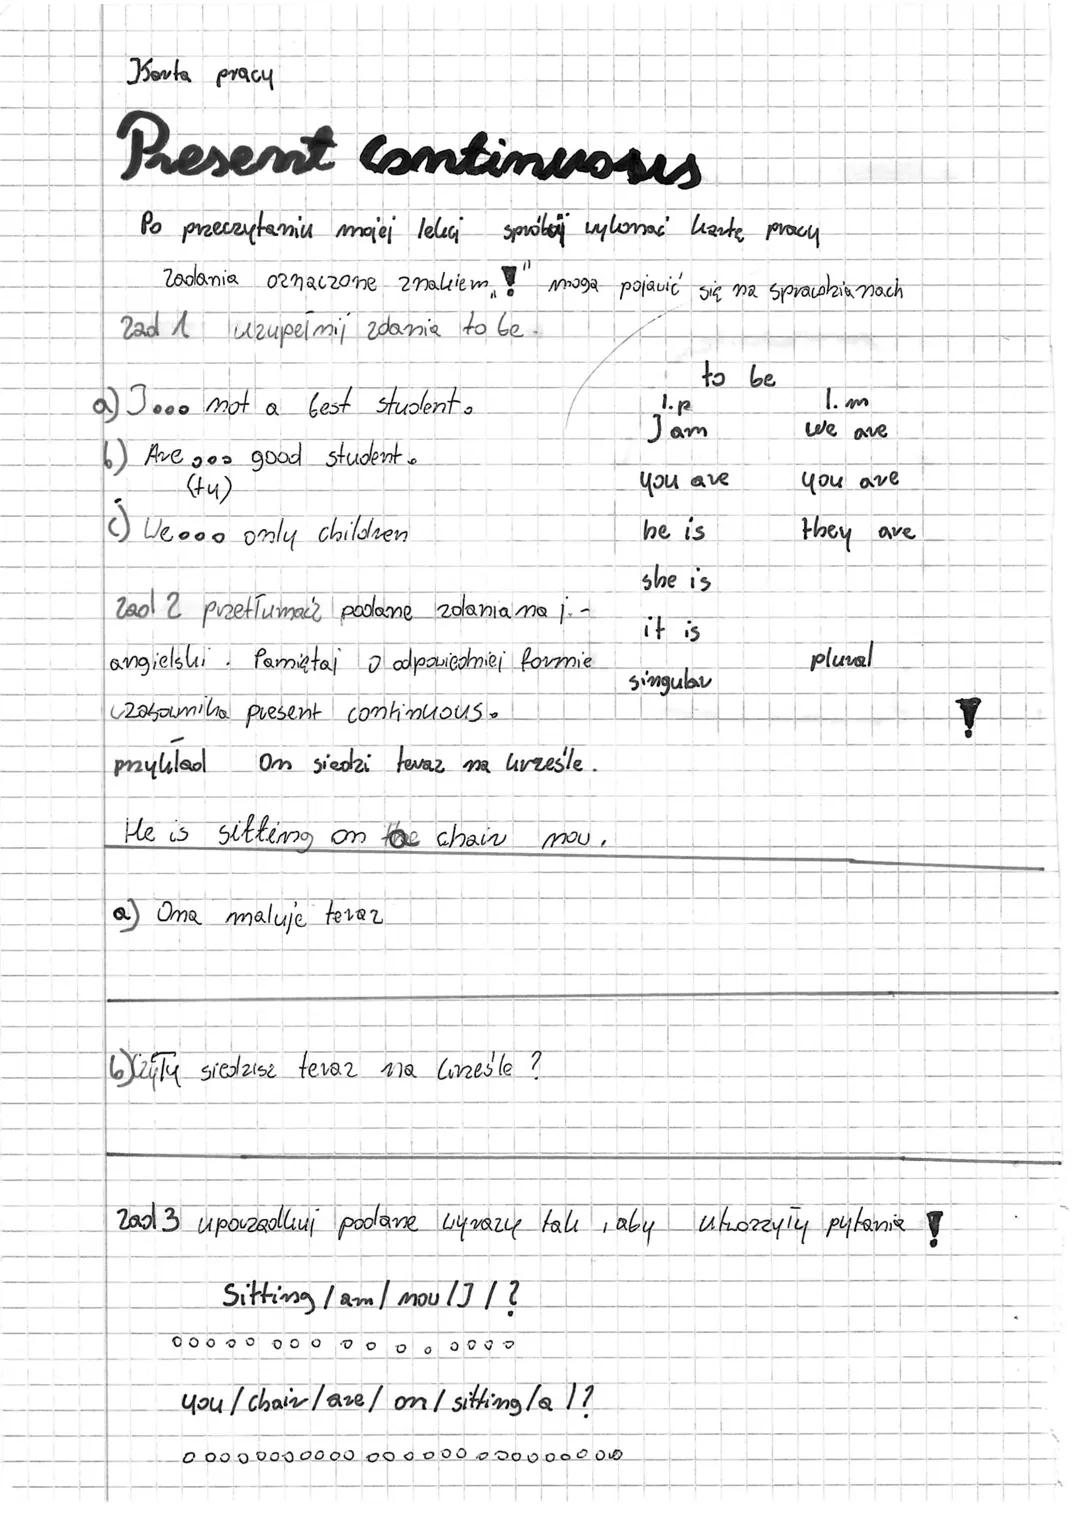 Karta pracy
Present continuous
Po przeczytaniu mojej lekcji spróbój wykonać kartę pracy
Zadania oznaczone znakiem „!" moga pojawić się na sprawdzianach
Zad 1 Uzupełnij zdania to be.
a) I... not a best student.
b) Are ... good student.
(ty)
c) We... only children
to be
l.p l.m
I am we are
you are you are
he is they are
she is
it is
singular plural
Zad 2 przetłumacz podane zdania na j.-
angielski. Pamiętaj o odpowiedniej formie
czasownika present continuous. !
przykład On siedzi teraz na krześle.
He is sitting on the chair now.
a) Ona maluje teraz
b) Czy Ty siedzisz teraz na krześle ?
Zad 3 uporządkuj podane wyrazy tak, aby utworzyły pytania !
Sitting / am / now / I / ?
you / chair / are / on / sitting / a / ?